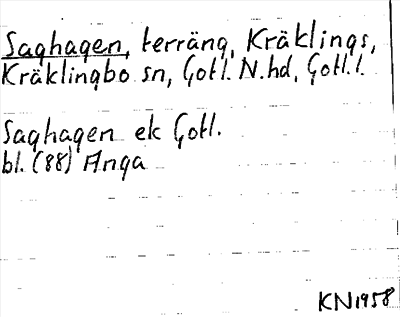 Saghagen, terräng, Kräklings,
Kräklingbo sn, Gotl. N.hd, Gotl.l.
Saghagen ek Gotl.
bl. (88) Anga
KN1958